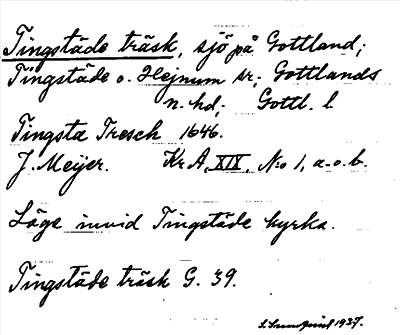 Tingstäde träsk, sjö på Gottland;
Tingstäde o. Hejnum sr; Gottlands
n. hd; Gottl. l.
Tingsta Tresch 1646.
J. Meijer. KrA, XIX, N:o 1, a.o.b.
Läge invid Tingstäde kyrka.
Tingstäde träsk G. 39.
1937.